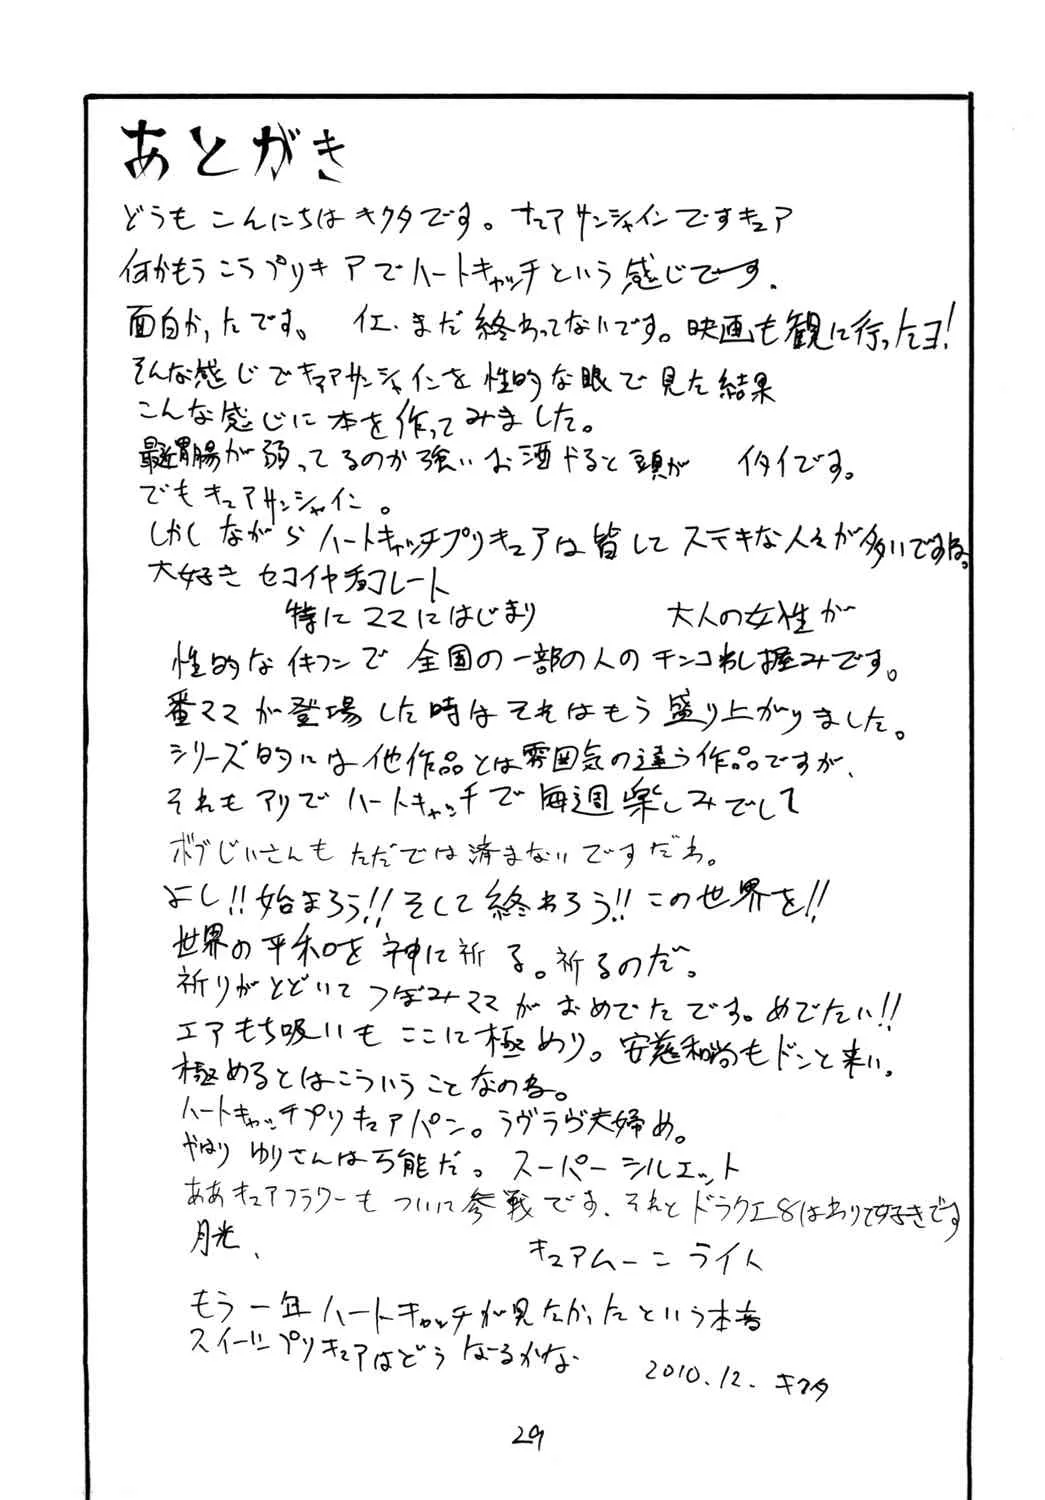 あとがき
どうも こんにちは キクタです。 キュアサンシャインですキュア
何かもうこうプリキュアでハートキャッチという感じです。
面白かったです。 イエ、まだ終わってないです。映画も観に行ったヨ!
そんな感じでキュアサンシャインを性的な眼で見た結果
こんな感じに本を作ってみました。
最近胃腸が弱ってるのか強いお酒やると頭が イタイです。
でもキュアサンシャイン。
しかしながらハートキャッチプリキュアは皆してステキな人々が多いですね。
大好き セコイヤチョコレート
特にママにはじまり 大人の女性が
性的なイキフンで全国の一部の人のチンコわし掴みです。
番ママが登場した時はそれはもう盛り上がりました。
シリーズ的には他作品とは雰囲気の違う作品ですが、
それもアリでハートキャッチで毎週楽しみでして
ボブじいさんもただでは済まないですだわ。
よし!!始まろう!!そして終わろう!!この世界を!!
世界の平和を神に祈る。祈るのだ。
祈りがとどいてつぼみママがおめでたです。めでたい!!
エアもち吸いもここに極めり。安慈和尚もドンと来い。
極めるとはこういうことなのね。
ハートキャッチプリキュアパン。ラヴラヴ夫婦め。
やはりゆりさんは万能だ。スーパーシルエット
ああキュアフラワーもついに参戦です。それとドラクエ8はわりて好きです
月光、
キュアムーンライト
もう一年ハートキャッチが見たかったという本音
スイートプリキュアはどうなーるかな
2010.12. キクタ
29